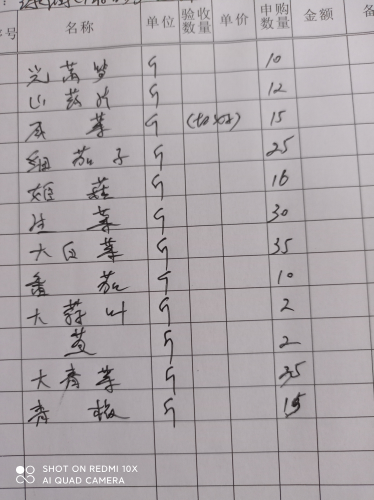 序号 名称 单位 验收数量 单价 申购数量 金额 备
光莴笋 斤 10
山药片 斤 12
斤 15
细茄子 斤 25
斤 16
生菜 斤 30
大白菜 斤 35
番茄 斤 10
大蒜叶 斤 2
斤 2
大青菜 斤 35
青椒 斤 15
SHOT ON REDMI 10X
AI QUAD CAMERA